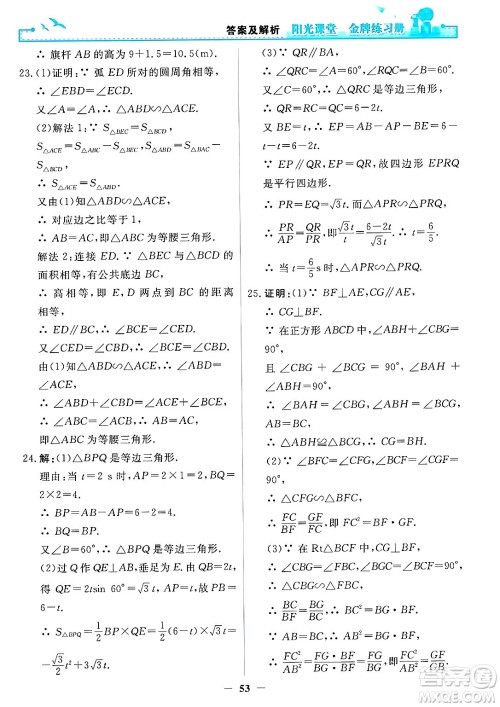 答案及解析 阳光课堂 金牌练习册
∴ 旗杆 AB 的高为 9+1.5=10.5(m).
23.(1)证明:∵ 弧 ED 所对的圆周角相等,
∴ ∠EBD=∠ECD.
又∵ ∠A=∠A,∴ △ABD∽△ACE.
(2)解法 1:∵ S△BEC=S△BCD,
S△ACE=S△ABC-S△BEC,S△ABD=S△ABC-S△BCD,
∴ S△ACE=S△ABD.
又由(1)知△ABD∽△ACE,
∴ 对应边之比等于 1,
∴ AB=AC,即△ABC 为等腰三角形.
解法 2:连接 ED.∵ △BEC 与△BCD 的
面积相等,有公共底边 BC,
∴ 高相等,即 E,D 两点到 BC 距离
相等,
∴ ED∥BC,∴ ∠BCE=∠CED.
又∵ ∠CED=∠CBD,
∴ ∠BCE=∠CBD.
又由(1)知△ABD∽△ACE,
∴ ∠ABD=∠ACE,
∴ ∠ABD+∠CBD=∠ACE+∠BCE,
即∠ABC=∠ACB,
∴ AB=AC,即△ABC 为等腰三角形.
24.解:(1)△BPQ 是等边三角形.
理由:当 t=2 s 时,AP=2×1=2,BQ=2×2=4.
∴ BP=AB-AP=6-2=4,
∴ BQ=BP.
又∵ ∠B=60°,∴ △BPQ 是等边三角形.
(2)过 Q 作 QE⊥AB,垂足为 E.
由 QB=2t,得 QE=2tsin 60°=√3 t,
由 AP=t,得 PB=6-t.
∴ S△BPQ=1/2 BP×QE=1/2(6-t)×√3 t=
-√3/2 t²+3√3 t.
(3)∵ QR∥BA,
∴ ∠QRC=∠A=60°,∠RQC=∠B=60°.
又∵ ∠C=60°,∴ △QRC 是等边三角形,
∴ QR=RC=QC=6-2t.
又∵ BE=t,∴ EP=AB-AP-BE=6-
t-t=6-2t,
∴ EP∥QR,EP=QR,故四边形 EPRQ
是平行四边形.
∴ PR=EQ=√3 t.又∵ △APR∽△PRQ,
∴ PR/AP=QR/PR,即 √3t/t=(6-2t)/√3t,∴ t=6/5
∴ 当 t=6/5 s 时,△APR∽△PRQ.
25.证明:(1)∵ BG⊥AE,
∴ ∠BHA=90°.
∵ 在正方形 ABCD 中,∠ABH+∠CBG=
90°,
且∠CBG+∠BGC=90°,
∴ ∠BGC=∠ABH.
又∵ ∠BHA=∠BCG=90°,
∴ △ABH∽△BGC.
(2)∵ CF⊥BG,
∴ ∠BFC=∠CFG=90°.
又∵ ∠BCF+∠CBF=90°,且∠CBG+
∠BGC=90°,∴ ∠BCF=∠BGC,
∴ △CFG∽△BFC.
∴ FC/BF=GF/FC,即FC²=BF·GF.
(3)∵ 在 Rt△BCF 中,
∴ △BCF∽△BGC,
∴ BC/BF=BG/BC,∴ BC²=BG·BF.
又∵ FC²=BF·GF,
∴ FC²/BC²=BF·GF/BG·BF=GF/GB.
又∵ AB=BC,∴ FC²/AB²=GF/GB.
53